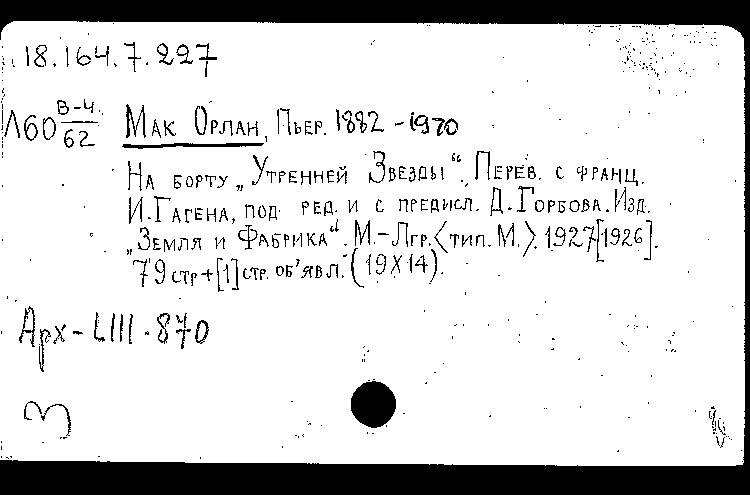 18.164.7.227
Л60 В-4/62
Мак Орлан, Пьер. 1882-1970
На борту „Утренней Звезды“. Перев. с франц.
И. Гагена, под ред. и с предисл. Д. Горбова. Изд.
„Земля и Фабрика“. М.-Лгр. <тип. М.>. 1927[1926].
79 стр + [1] стр. об'явл. (19X14).
Арх-LIII.870
З